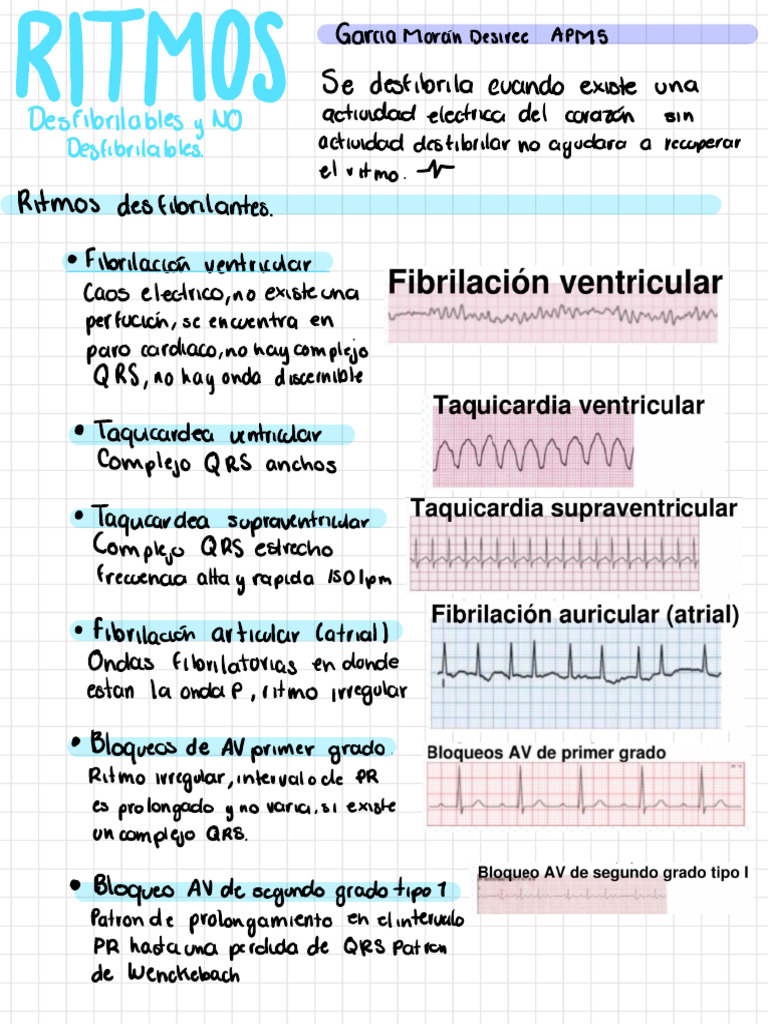 RITMOS
Desfibrilables y NO
Desfibrilables.
Garcia Morán Desiree APMS
Se desfibrila cuando existe una
actividad electrica del corazón sin
actividad desfibrilar no ayudara a recuperar
el ritmo.
Ritmos desfibrilantes.
• Fibrilación ventricular
Caos electrico, no existe una
perfución, se encuentra en
paro cardiaco, no hay complejo
QRS, no hay onda discernible
Fibrilación ventricular
• Taquicardea ventricular
Complejo QRS anchos
Taquicardia ventricular
• Taquicardea supraventricular
Complejo QRS estrecho
frecuencia alta y rapida 150 lpm
Taquicardia supraventricular
• Fibrilación articular (atrial)
Ondas fibrilatorias en donde
estan la onda P, ritmo irregular
Fibrilación auricular (atrial)
• Bloqueos de AV primer grado.
Ritmo irregular, intervalo de PR
es prolongado y no varia, si existe
un complejo QRS.
Bloqueos AV de primer grado
• Bloqueo AV de segundo grado tipo 1
Patron de prolongamiento en el intervalo
PR hasta una perdida de QRS Patron
de Wenckebach
Bloqueo AV de segundo grado tipo I